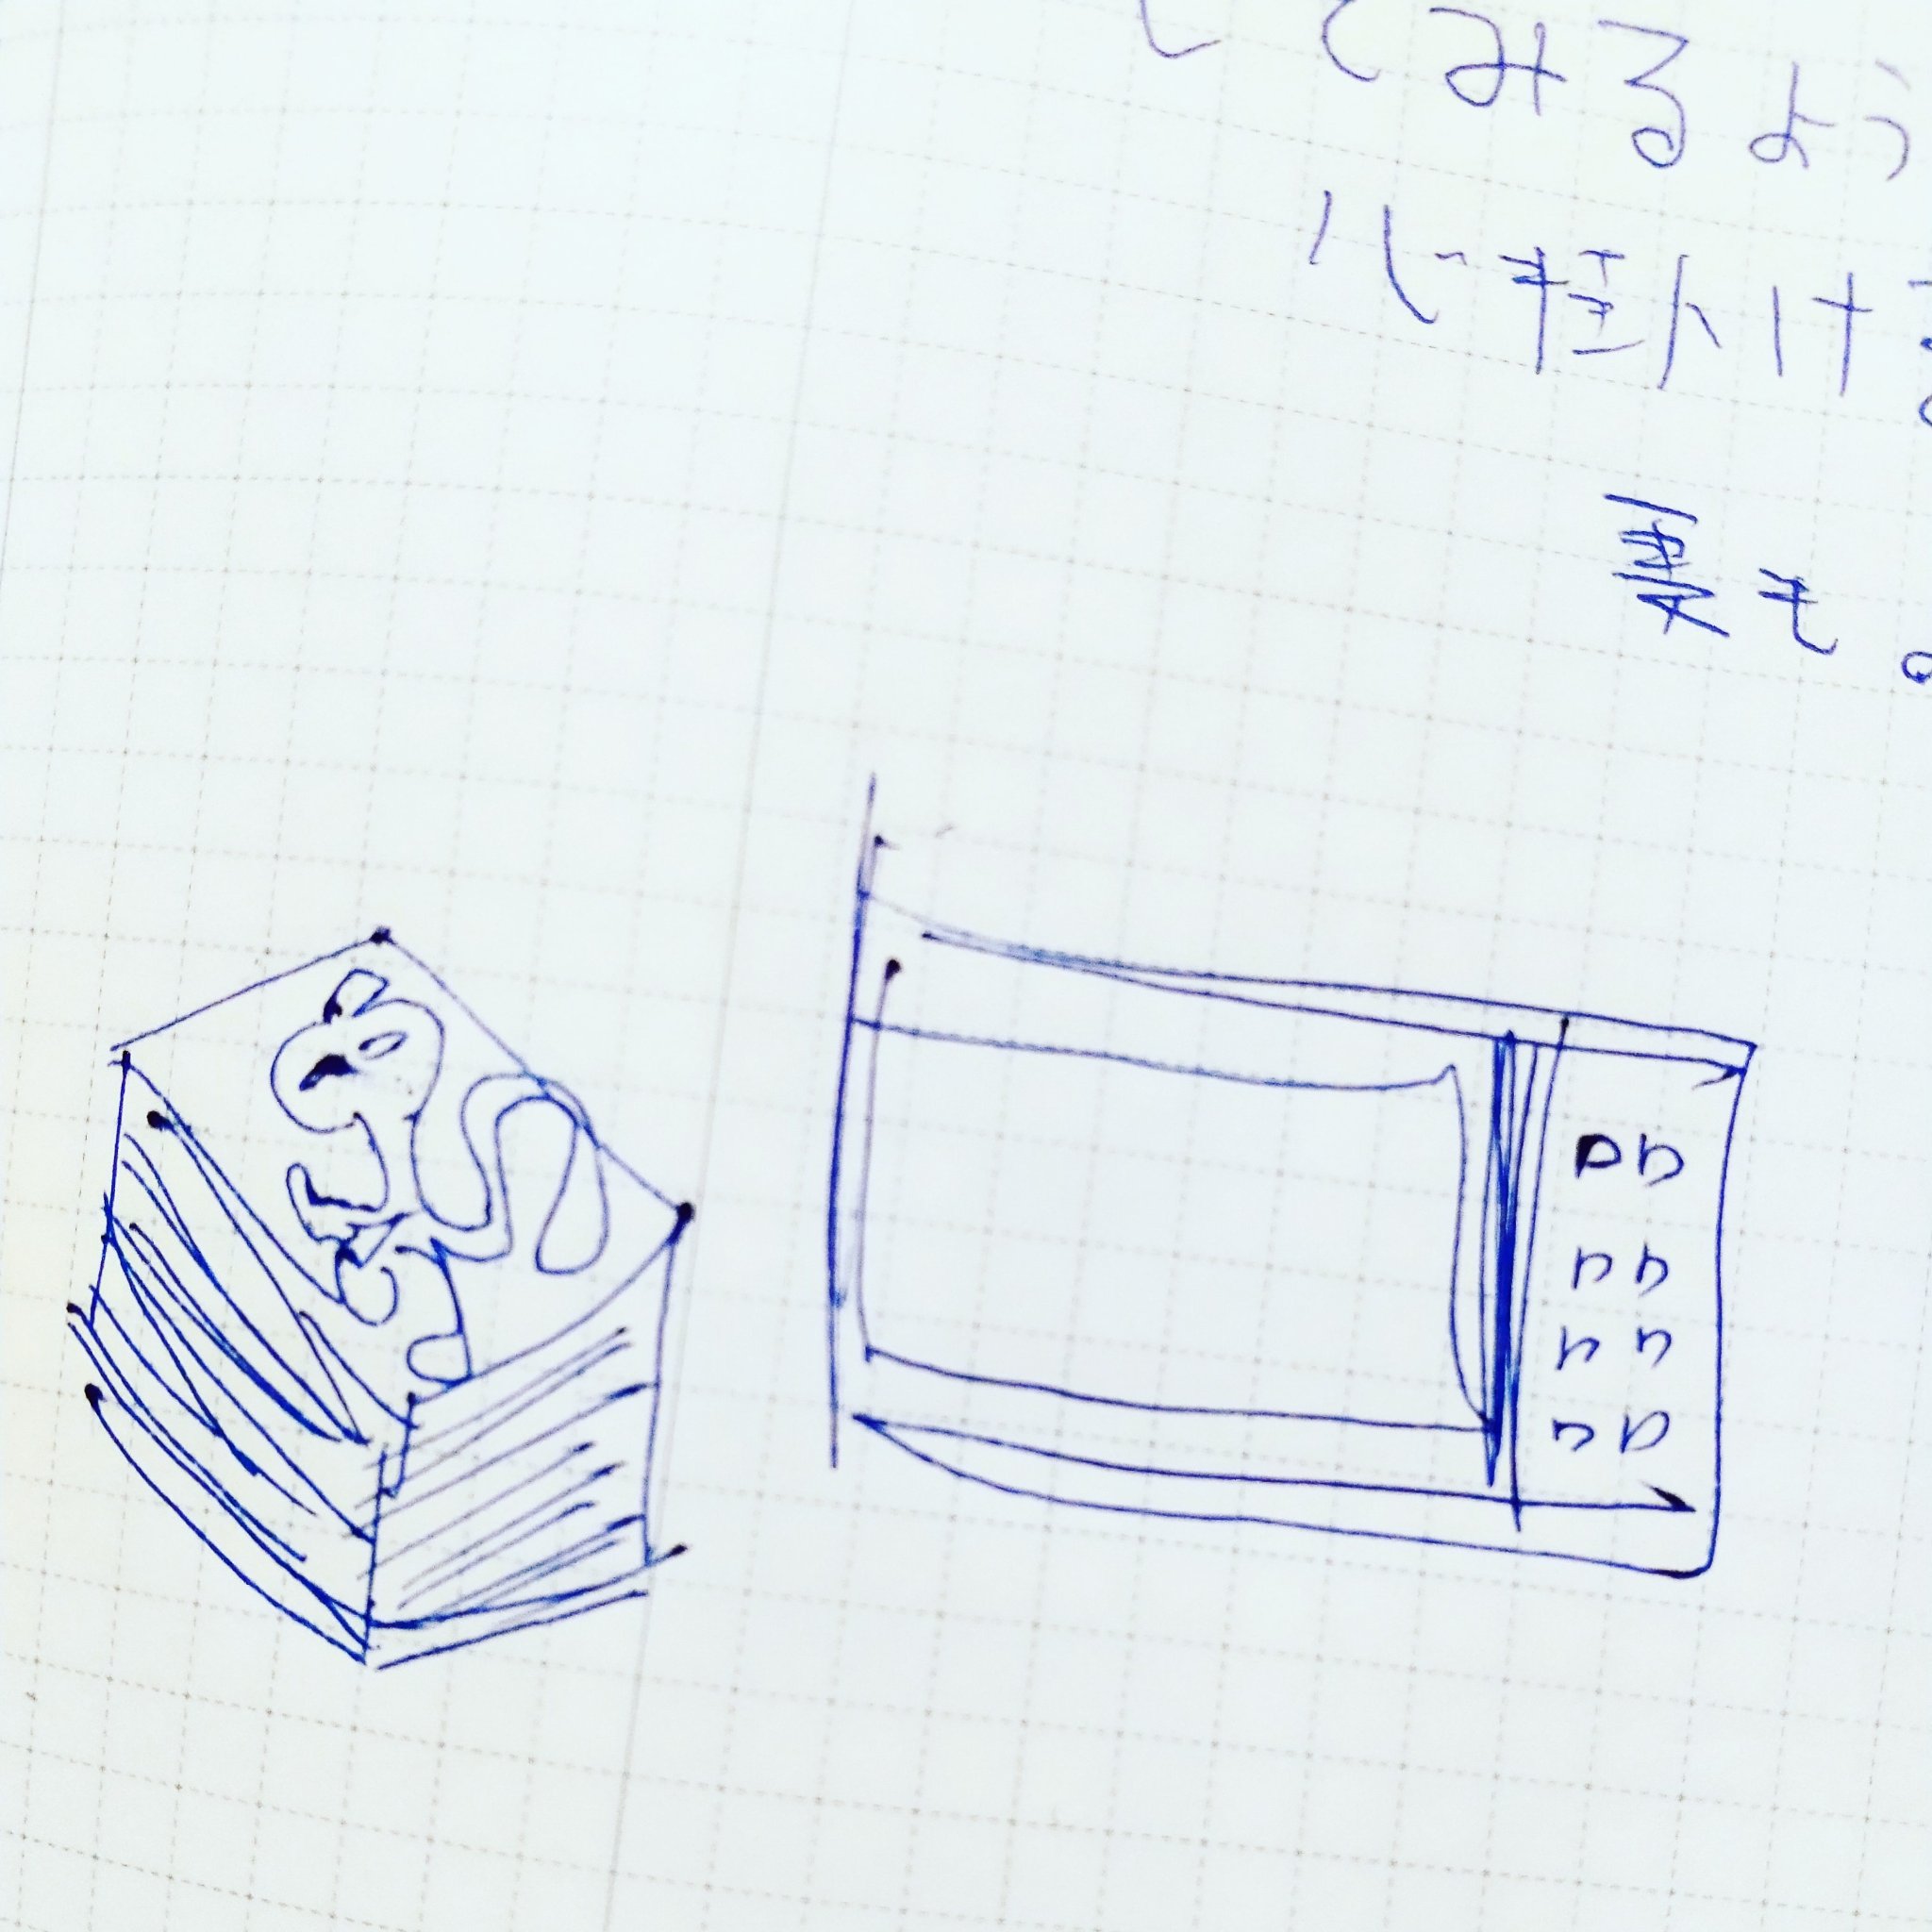 してみるよう
心掛ける
裏も